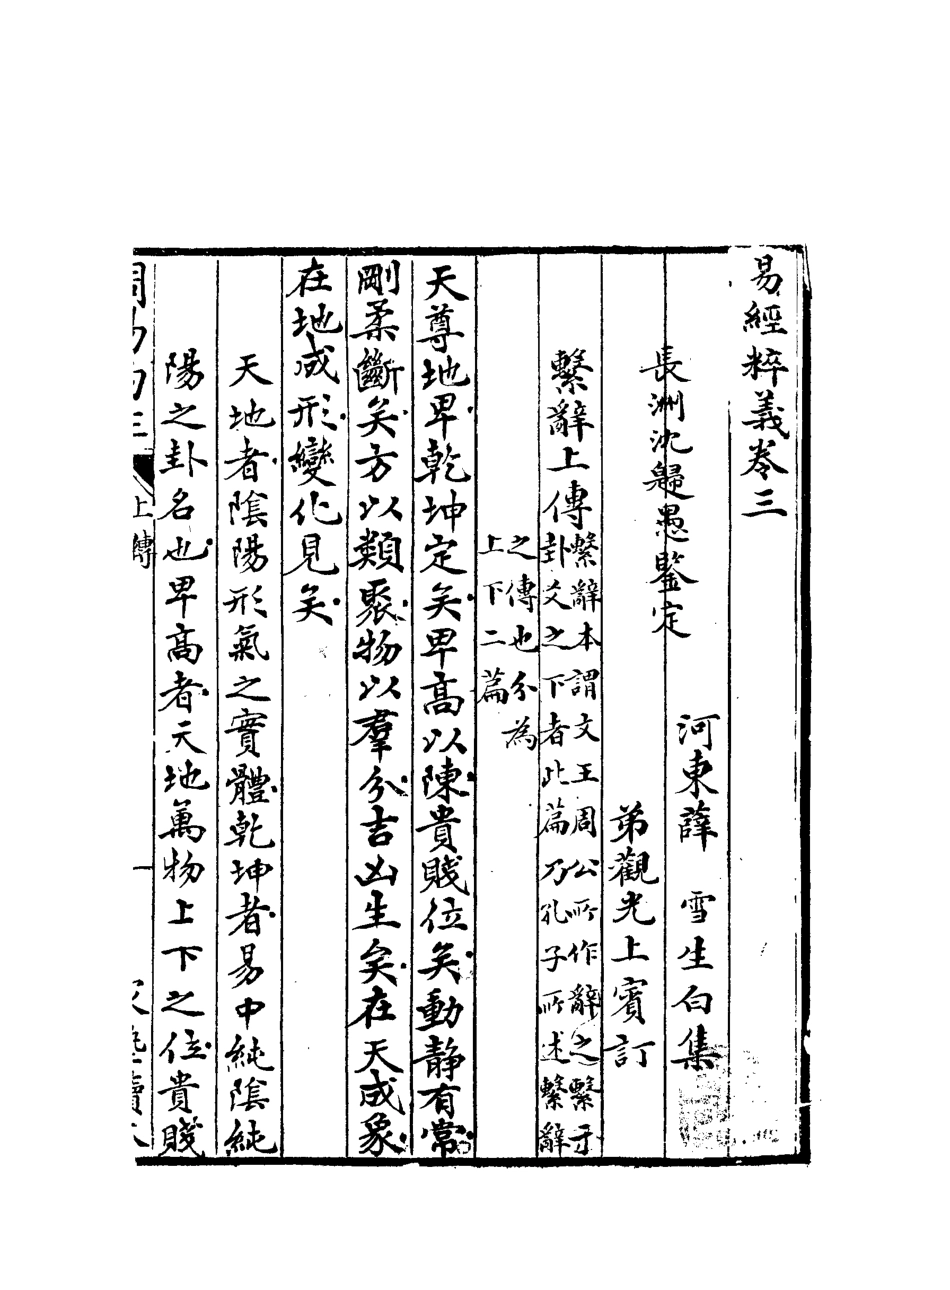 易經粹義卷三
長洲沈歸愚鑒定
河東薛　雪生白集
弟觀光上賓訂
繫辭上傳
繫辭本謂文王周公所作辭之繫于
卦爻之下者此篇乃孔子所述繫辭
之傳也分為
上下二篇
天尊地卑乾坤定矣卑高以陳貴賤位矣動靜有常
剛柔斷矣方以類聚物以羣分吉凶生矣在天成象
在地成形變化見矣
天地者陰陽形氣之實體乾坤者易中純陰純
陽之卦名也卑高者天地萬物上下之位貴賤
上傳
一